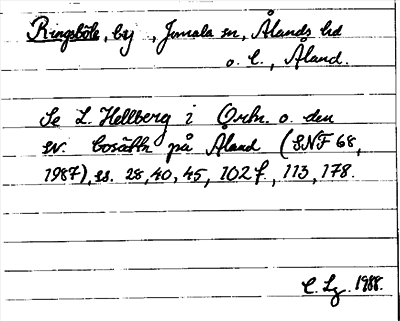 Ringsböle, by, Jomala sn, Ålands hd
o. l., Åland.
Se L. Hellberg i Ortn. o. den
sv. bosättn på Åland (SNF 68,
1987), ss. 28, 40, 45, 102 f., 113, 178.
C. Lg. 1988.